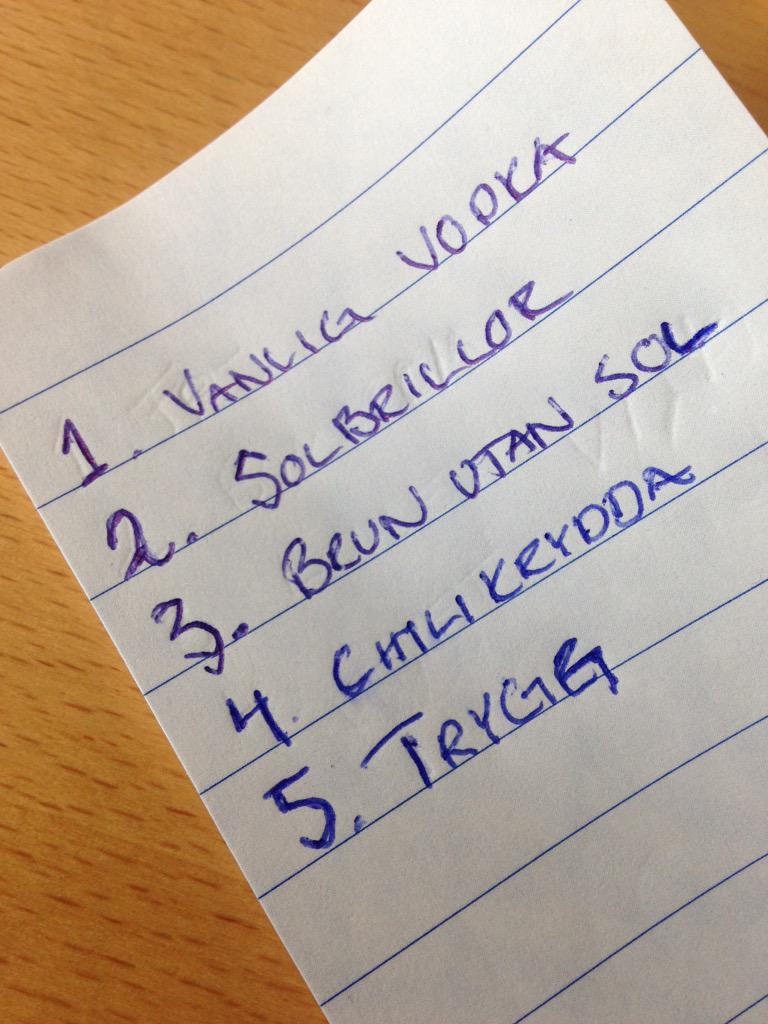 1. VANLIG VODKA
2. SOLBRILLOR
3. BRUN UTAN SOL
4. CHILIKRYDDA
5. TRYGG